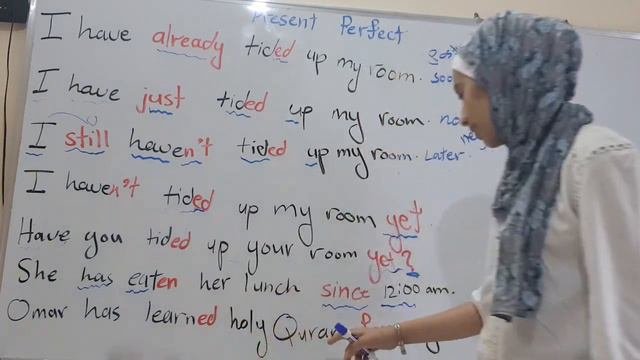 Present Perfect
I have already tided up my room.
I have just tided up my room.
I still haven't tided up my room. Later.
I haven't tided up my room yet
Have you tided up your room yet?
She has eaten her lunch since 12:00 am.
Omar has learned holy Quran